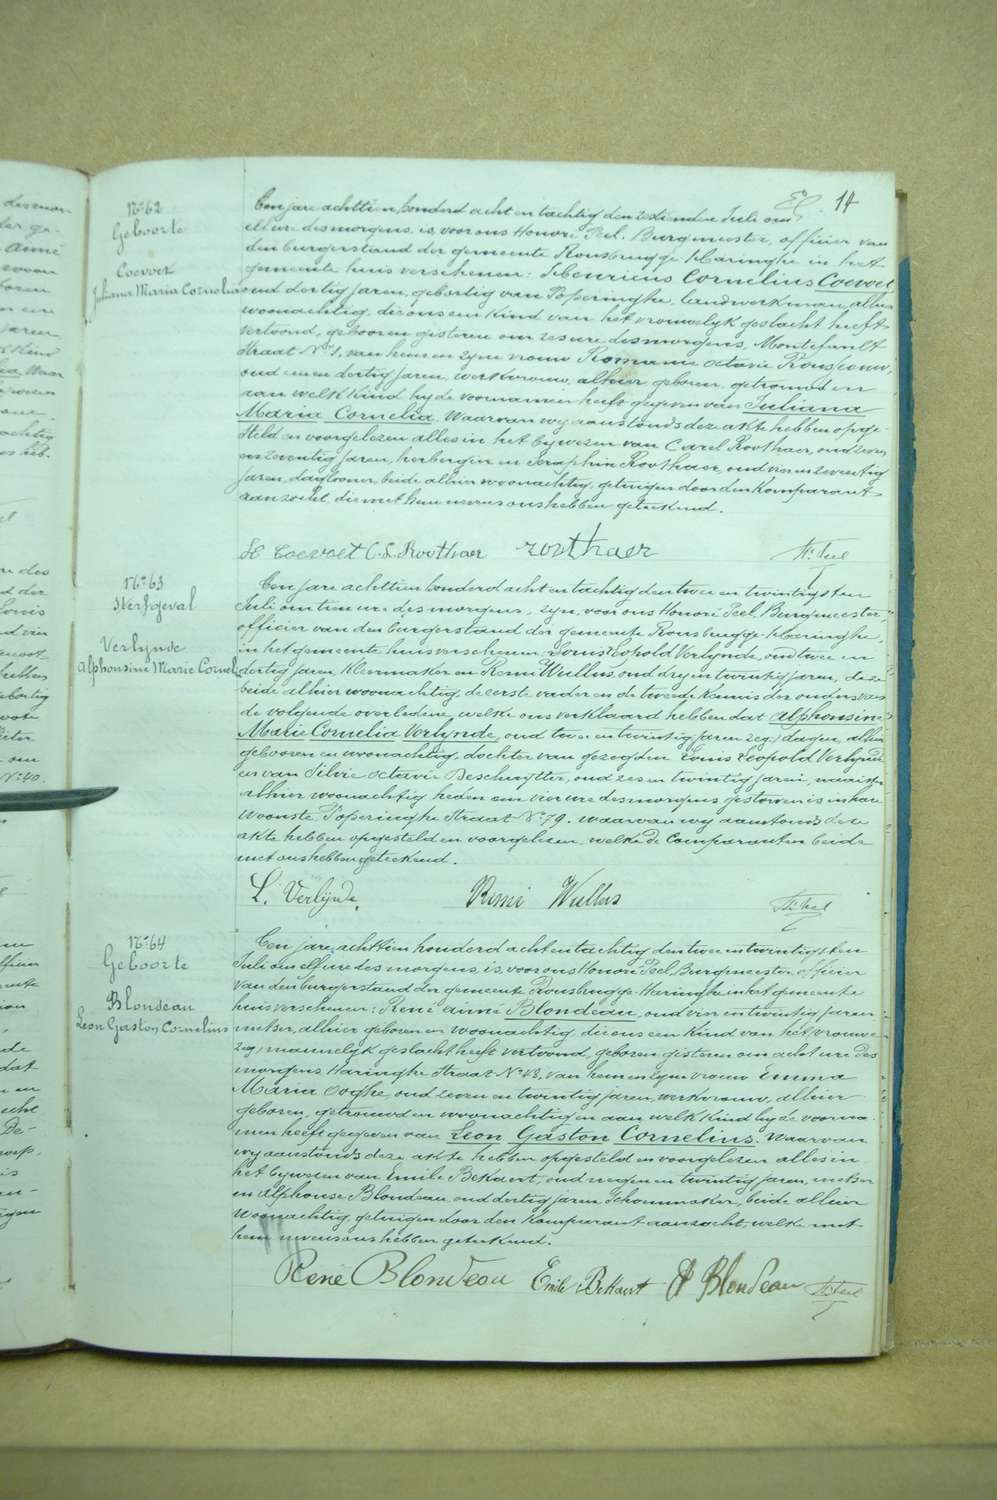 14
N° 62
Geboorte
Coevoet
Juliana Maria Cornelia
Een jare achttien honderd acht en tachtig den zestienden Juli om
elf ure des morgens, is, voor ons Honoré Peel, Burgmeester, officier van
den burgerstand der gemeente Rousbrugge-Haringhe in het
gemeente huis verschenen: Henricus Cornelius Coevoet
oud dertig jaren, geboortig van Poperinghe, landwerkman, alhier
woonachtig, die ons een kind van het vrouwelyk geslacht heeft
vertoond, geboren gisteren om zes ure des morgens,
Straat N° 1, van hem en zyne vrouw Romanie Octavie
oud een en dertig jaren, werkvrouw, alhier geboren, getrouwd en
aan welk kind hy de voornamen heeft gegeven van Juliana
Maria Cornelia. Waarvan wy aanstonds deze akte hebben opge-
steld en voorgelezen alles in het bywezen van Carel Roothaer, oud zeven
en zeventig jaren, herbergier en Seraphin Roothaer, oud vier en zeventig
jaren, daglooner, beide alhier woonachtig, getuigen door den komparant
aanzocht, die met hem nevens ons hebben geteekend.
H Coevoet C. L. Roothaer roothaer H. Peel
N° 63
Sterfgeval
Verlynde
Alphonsine Marie Cornel
Een jare achttien honderd acht en tachtig den twee en twintigsten
Juli om tien ure des morgens, zyn, voor ons Honoré Peel, Burgmeester,
officier van den burgerstand der gemeente Rousbrugge-Haringhe,
in het gemeente huis verschenen: Louis Leopold Verlynde, oud twee en
dertig jaren, kleermaker en Remi Wullus, oud dry en twintig jaren,
beide alhier woonachtig, de eerste vader en de tweede kennis der ouders van
de volgende overledene, welke ons verklaard hebben dat Alphonsine
Marie Cornelia Verlynde, oud twee en twintig jaren zeg: dagen, alhier
geboren en woonachtig, dochter van gezegden Louis Leopold Verlynde
en van Silvie Octavie Deschuytter, oud zes en twintig jaren, naaister
alhier woonachtig heden om vier ure des morgens gestorven is in hare
woonste, Poperinghe Straat N° 79. waarvan wy aanstonds deze
akte hebben opgesteld en voorgelezen, welke de comparanten beide
met ons hebben geteekend.
L. Verlynde. Remi Wullus H. Peel
N° 64
Geboorte
Blondeau
Leon Gaston Cornelius
Een jare achttien honderd acht en tachtig den twee en twintigsten
Juli om elf ure des morgens, is, voor ons Honoré Peel, Burgmeester officier
van den burgerstand der gemeente Rousbrugge-Haringhe in het gemeente
huis verschenen: René Aimé Blondeau, oud vier en twintig jaren
metser, alhier geboren en woonachtig, die ons een kind van het vrouwe
zeg: mannelyk geslacht heeft vertoond, geboren gisteren om acht ure des
morgens Haringhe Straat N° 43, van hem en zyne vrouw Emma
Maria Ooghe, oud zeven en twintig jaren, werkvrouw, alhier
geboren, getrouwd en woonachtig en aan welk kind hy de voorna-
men heeft gegeven van Leon Gaston Cornelius. Waarvan
wy aanstonds deze akte hebben opgesteld en voorgelezen alles in
het bywezen van Emile Bekaert, oud negen en twintig jaren, metser
en Alphonse Blondeau, oud dertig jaren, schoenmaker, beide alhier
woonachtig, getuigen door den komparant aanzocht, welke met
hem nevens ons hebben geteekend.
René Blondeau Emile Bekaert A Blondeau H. Peel